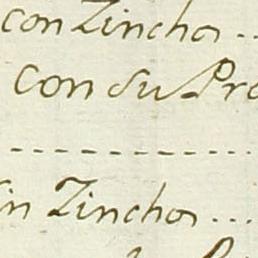 con Zinchos ..
con su Pre
in Zinchos ...